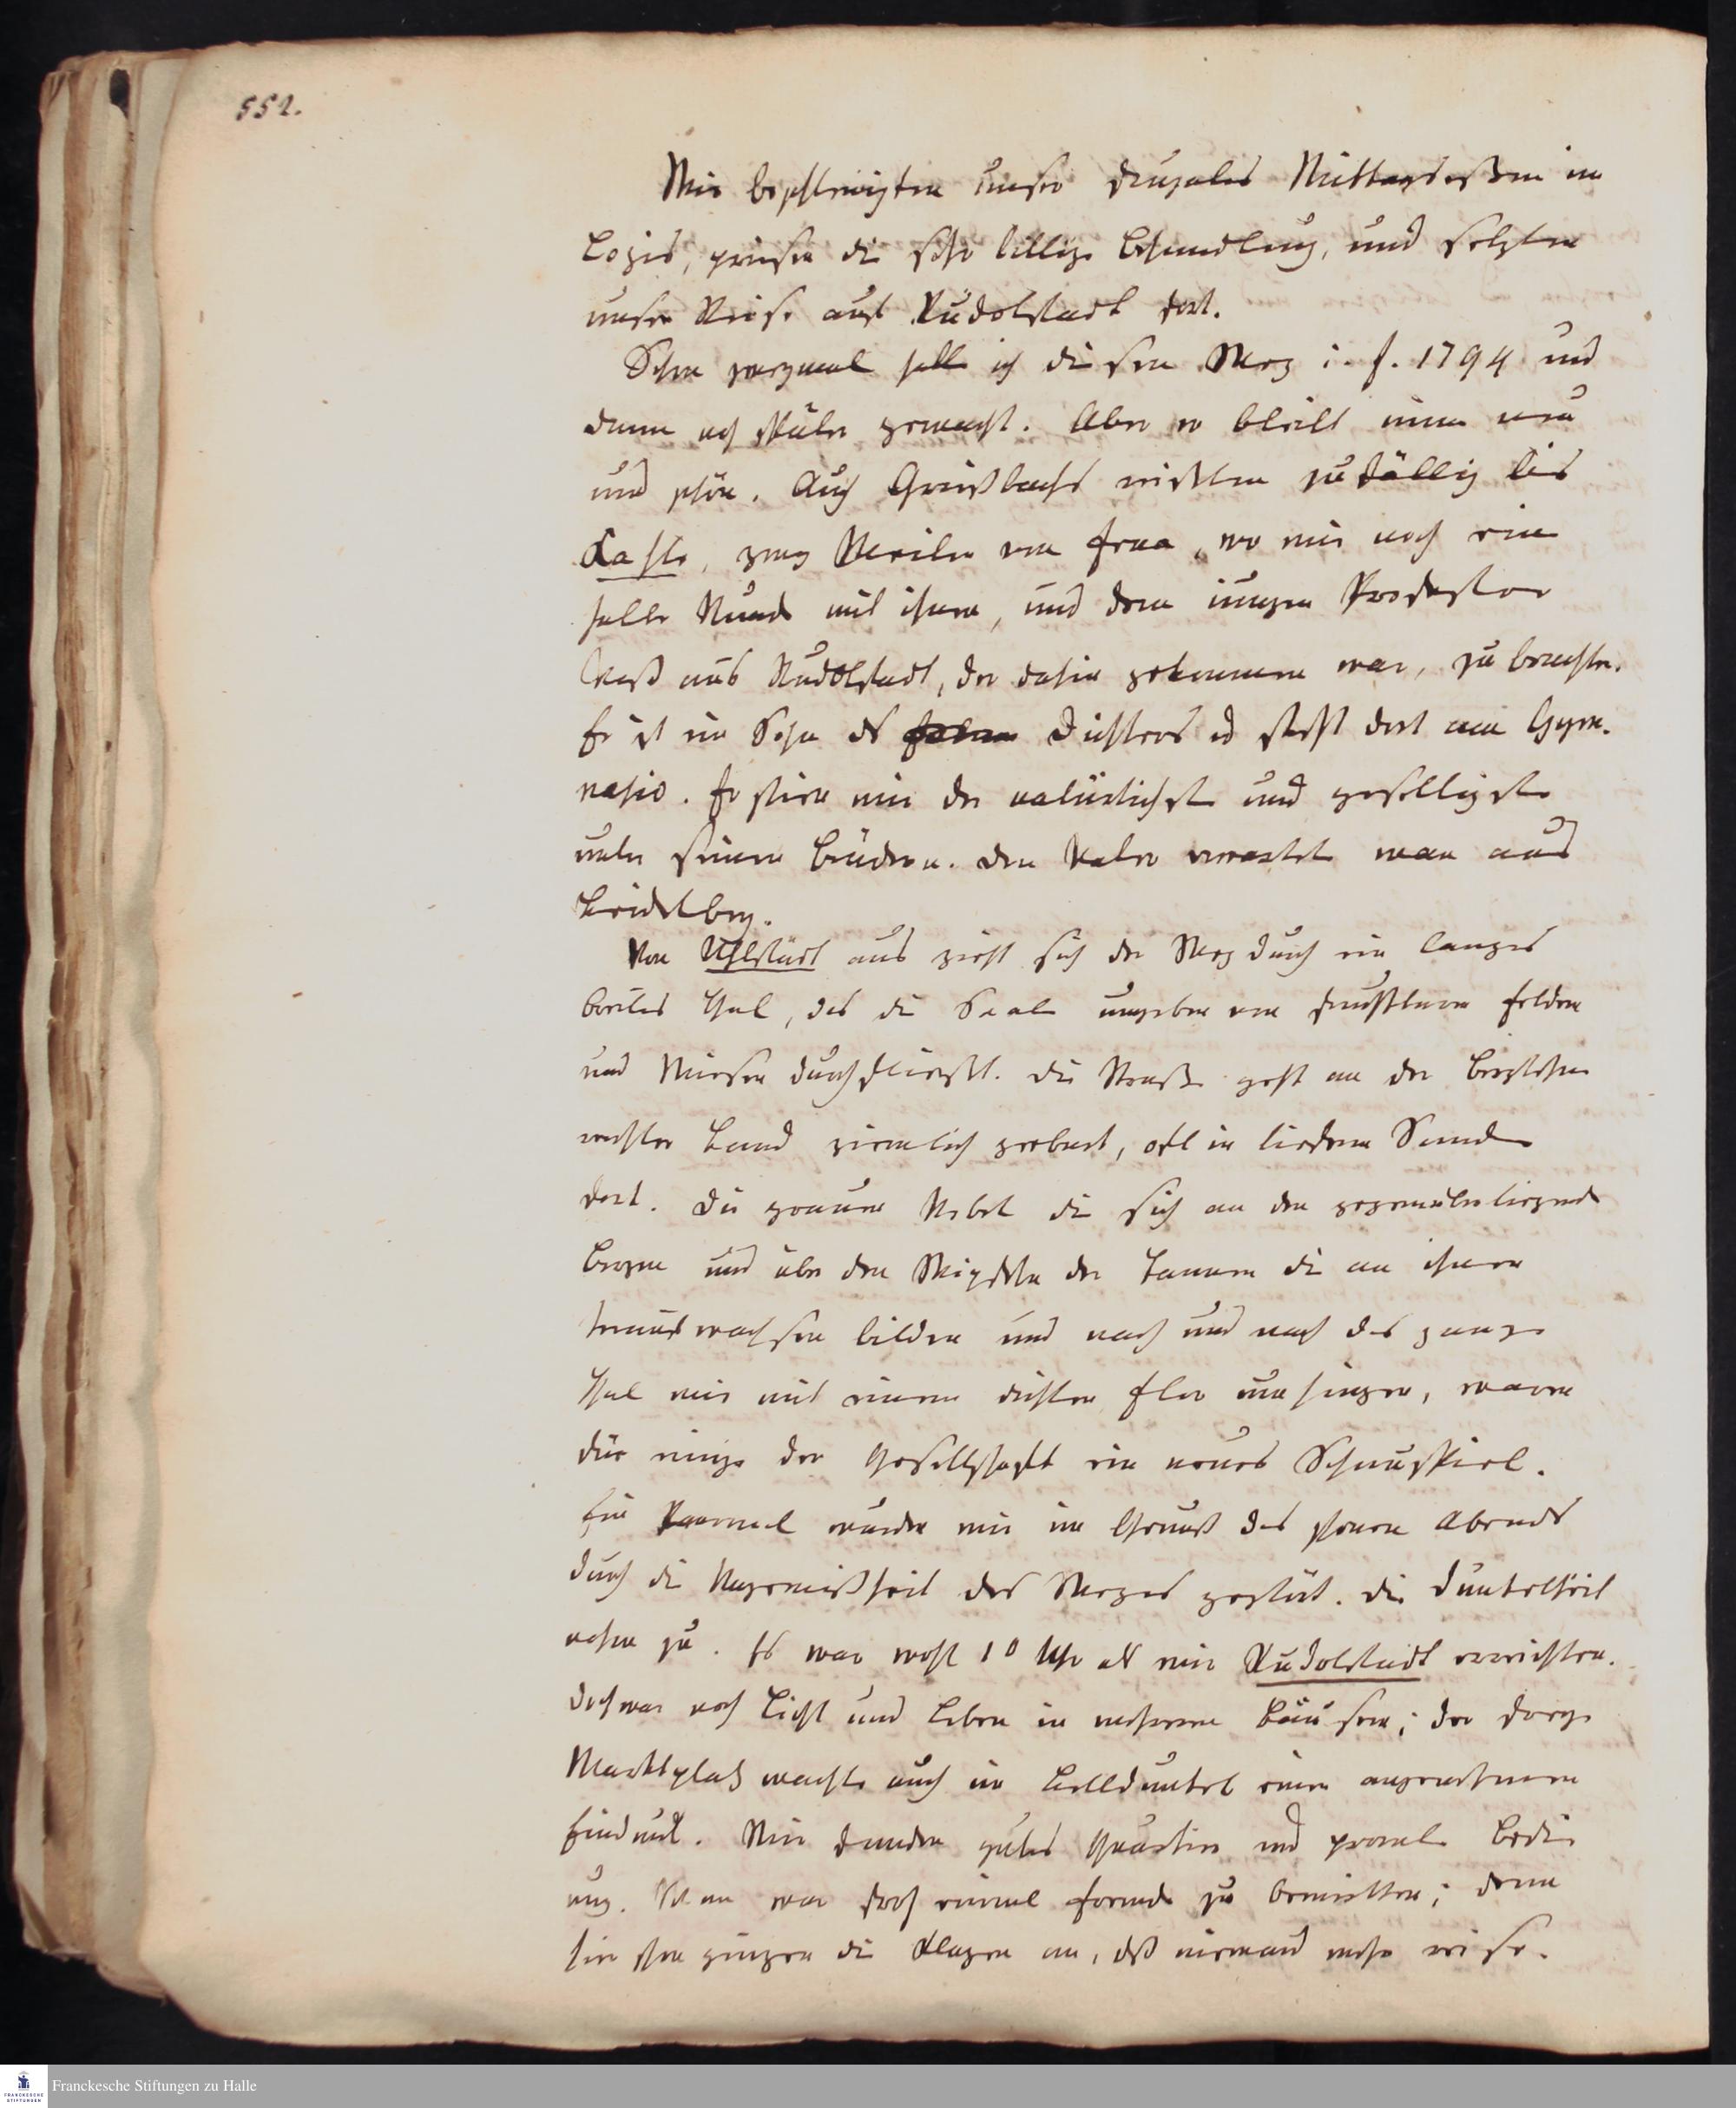 552.
Wir beschleunigten unser frugales Mittagsessen im
Logis, priesen die sehr billige Behandlung, und setzten
unsre Reise auf Rudolstadt fort.
Schon zweymal hatt ich diesen Weg i. J. 1794 und
dann noch später gemacht. Aber er bleibt immer neu
und schön. Auch Griesbachs reisten zufällig bis
Kahle, zwey Meilen von Jena, wo wir noch eine
halbe Stunde mit ihnen, und dem jungen Professor
Voß aus Rudolstadt, der dahin gekommen war, zubrachten.
Er ist ein Sohn des Dichters und steht dort am Gym-
nasio. Er schien mir der natürlichste und geselligste
unter seinen Brüdern. Den Vater erwartet man aus
Heidelberg.
Von Uhlstädt aus zieht sich der Weg durch ein langes
breites Thal, das die Saale umgeben von fruchtbaren Feldern
und Wiesen durchfließt. Die Straße geht an den Berglehnen
rechter Hand ziemlich gebahnt, oft in tiefem Sande
fort. Die grauen Nebel die sich an den gegenüberliegenden
Bergen und über den Wipfeln der Tannen die an ihnen
heraufwachsen bilden und nach und nach das ganze
Thal wie mit einem dichten Flor umhingen, waren
für einige der Gesellschaft ein neues Schauspiel.
Ein Paarmal wurden wir im Genuß des schönen Abends
durch die Ungewißheit des Weges gestört. Die Dunkelheit
nahm zu. Es war wohl 10 Uhr als wir Rudolstadt erreichten.
Doch war noch Licht und Leben in mehreren Häusern; der
Marktplatz machte auch im Helldunkel einen angenehmen
Eindruck. Wir fanden gutes Quartier und prompte Bedie-
nung. Man war froh einmal Fremde zu bewirthen; denn
hier schon gingen die Klagen an, daß niemand mehr reise.
Franckesche Stiftungen zu Halle
FRANCKESCHE
STIFTUNGEN